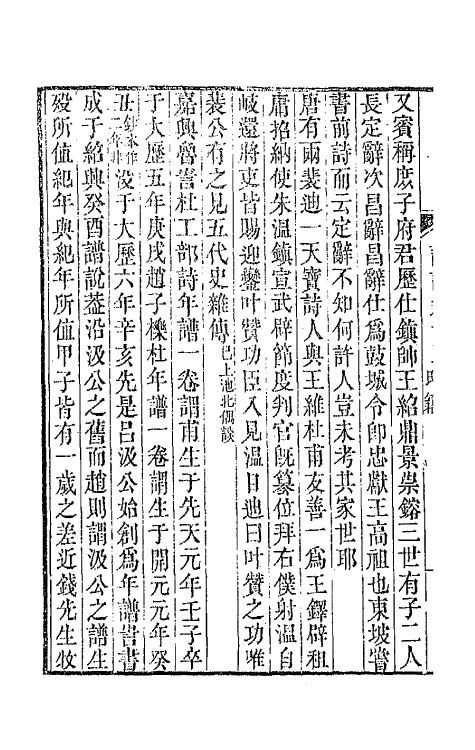 又賓稱庶子府君歷仕鎮帥王紹鼎景崇鎔三世有子二人
長定辭次昌辭昌辭仕爲鼓城令卽忠獻王高祖也東坡嘗
書前詩而云定辭不知何許人豈未考其家世耶
唐有兩裴迪一天寶詩人與王維杜甫友善一爲王鐸辟租
庸招納使朱溫鎮宣武辟節度判官旣篡位拜右僕射溫自
岐還將吏皆賜迎鑾叶贊功臣入見溫目迪曰叶贊之功唯
裴公有之見五代史雜傳已上池北偶談
嘉興魯訔杜工部詩年譜一卷謂甫生于先天元年壬子卒
于大歷五年庚戌趙子櫟杜年譜一卷謂生于開元元年癸
丑沒于大歷六年辛亥先是呂汲公始創爲年譜訔書
成于紹興癸酉譜說葢沿汲公之舊而趙則謂汲公之譜生
歿所值紀年與紀年所值甲子皆有一歲之差近錢先生牧